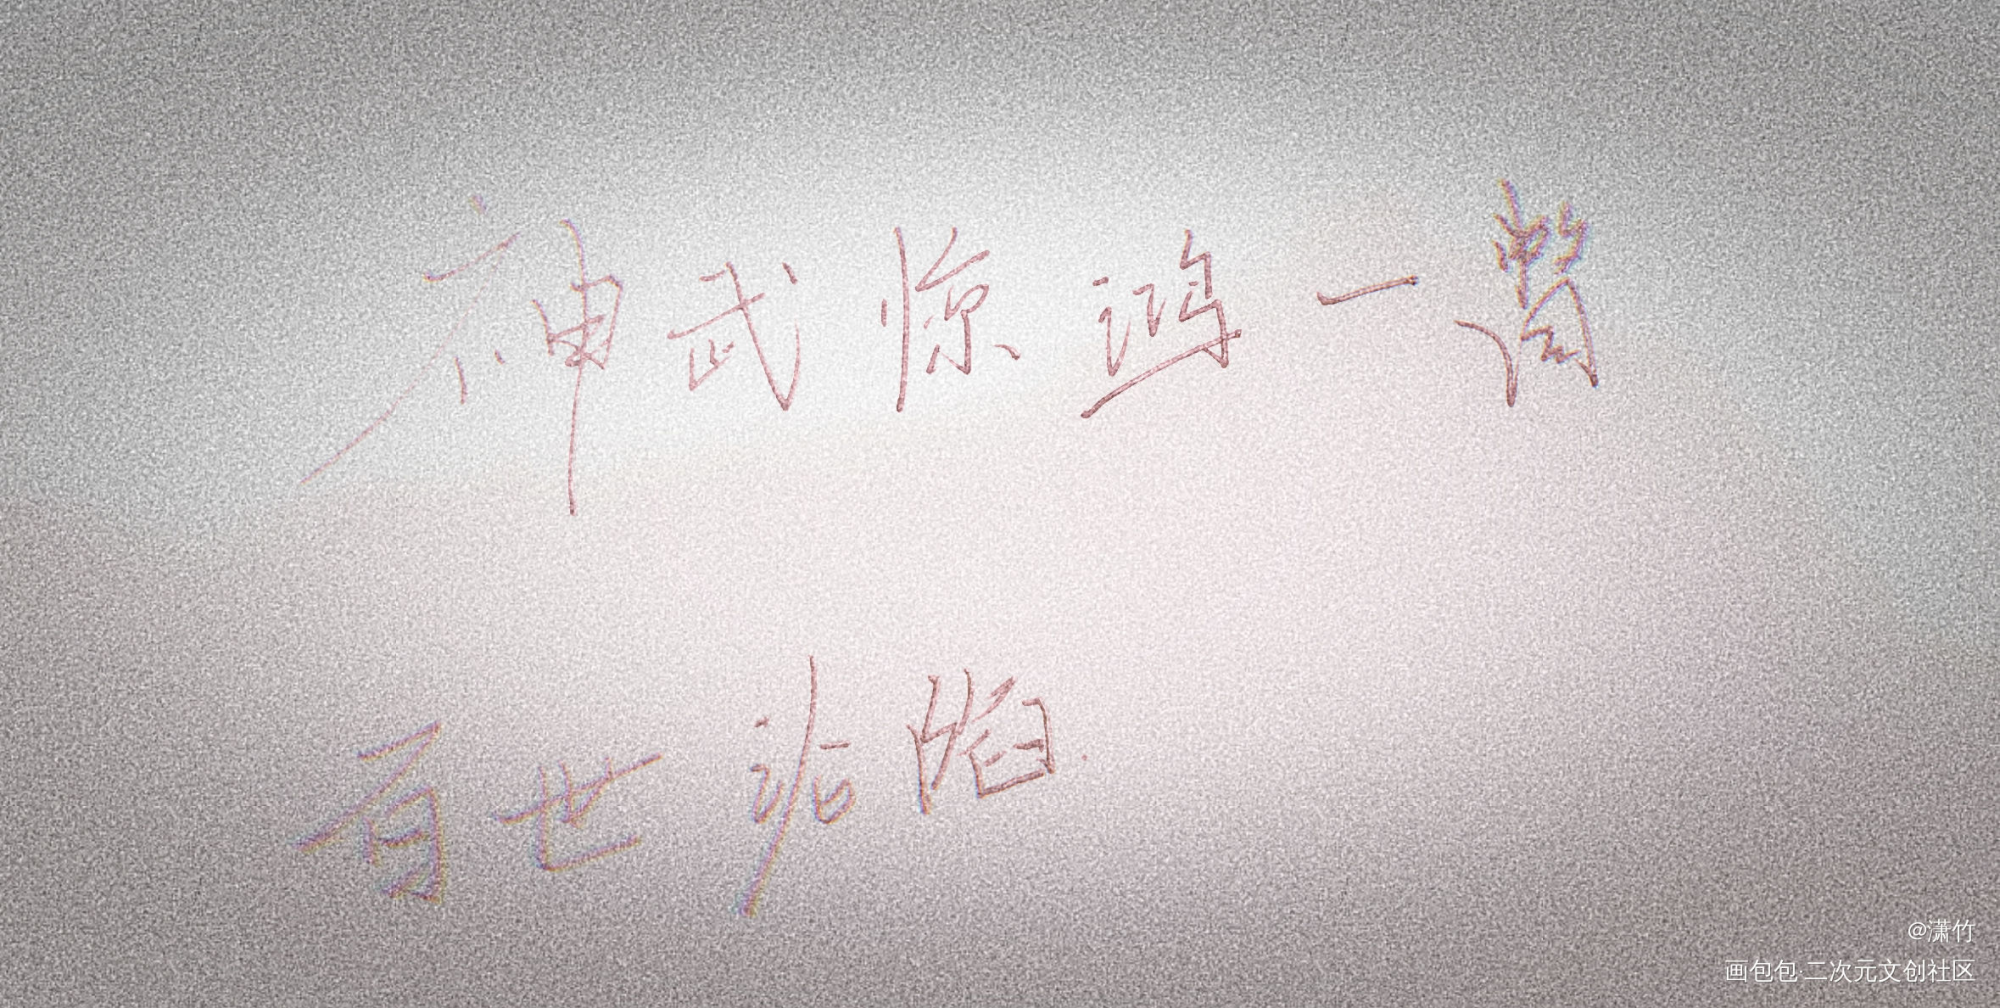 神武惊鸿一瞥
百世沦陷
@潇竹
画包包·二次元文创社区